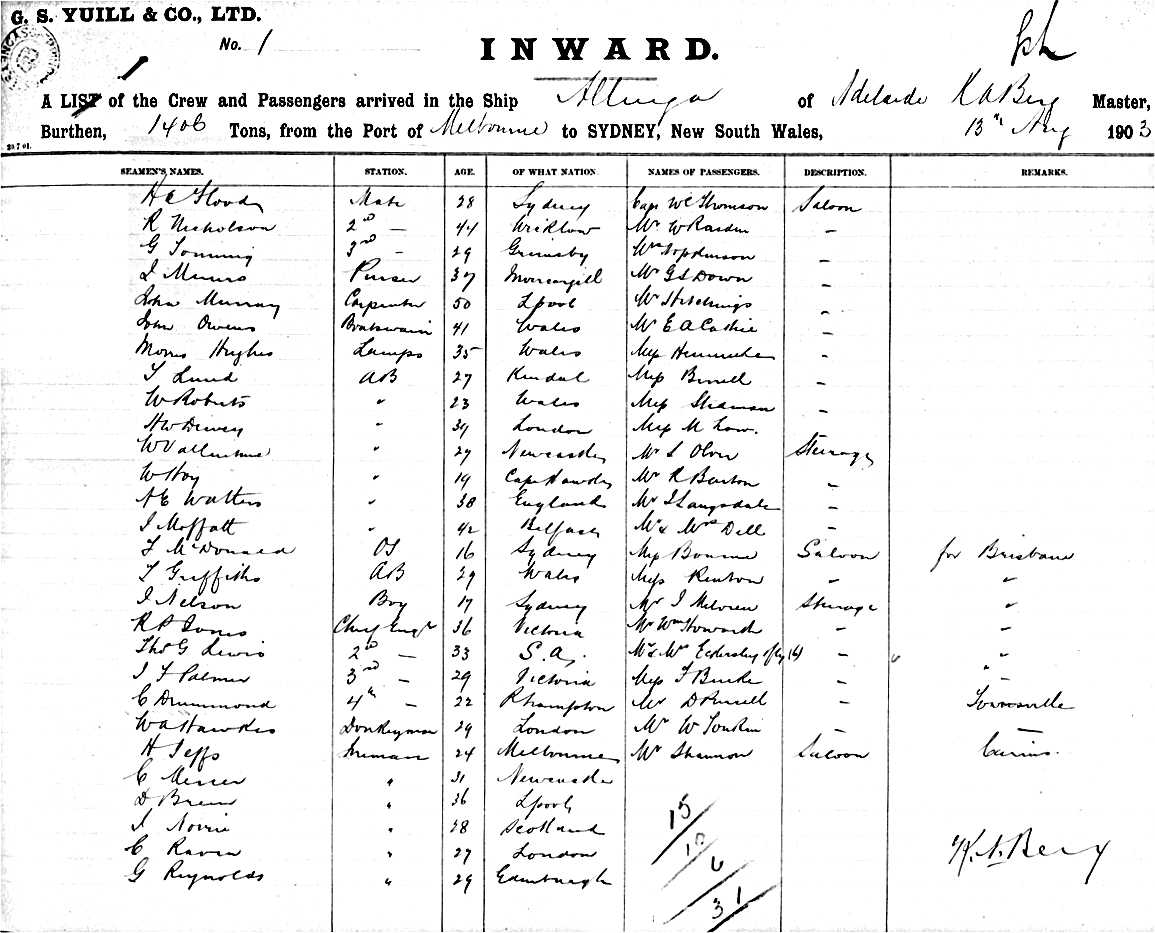 G. S. YUILL & CO., LTD.
No. 1
INWARD.
A LIST of the Crew and Passengers arrived in the Ship Altinga of Adelaide K A Berg Master,
Burthen, 1406 Tons, from the Port of Melbourne to SYDNEY, New South Wales, 13th Aug 1903
SEAMEN'S NAMES. STATION. AGE. OF WHAT NATION. NAMES OF PASSENGERS. DESCRIPTION. REMARKS.
H C Flood Mate 28 Sydney Capt W C Thomson Saloon
R Nicholson 2nd — 44 Wicklow Mr W —
G 3rd — 29 Grimsby —
Munro Purser 37 Mr G S Down —
John Murray Carpenter 50 Lpool Mr Hitchings —
John Owens Boatswain 41 Wales Mr E A —
Morris Hughes Lamps 35 Wales Miss —
T Lund AB 27 Kendal Miss —
W Roberts " 23 Wales Miss —
H W Dewey " London Miss M Low. —
W " 29 Newcastle Mr Steerage
W Hoy " 19 Cape Mr R Barton —
A E Walters " 38 England Mr Langsdale —
J Moffatt " 42 Belfast Mr & Mrs Dell —
McDonald OS 16 Sydney Miss Bourne Saloon for Brisbane
T Griffiths AB 29 Wales Miss Renton — "
J Nelson Boy 17 Sydney Mr J Steerage "
R P Jones Chief Engr 36 Victoria Mr Wm Howarth — "
Thos G Lewis 2nd — 33 S.A. Mr & Mrs (4) — " "
J F Palmer 3rd — 29 Victoria Miss F Burke — "
C Drummond 4th — 22 Rhampton Mr D — Townsville
W A Hawkes Donkeyman 29 London Mr W Tonkin — —
H Jeffs Fireman 24 Melbourne Mr Shannon Saloon Cairns.
C Messer " 31 Newcastle
D " 36 Lpool
J Norrie " 28 Scotland
C Raven " 27 London
G Reynolds " 29 Edinburgh
15
10
6
31
K. A. Berg